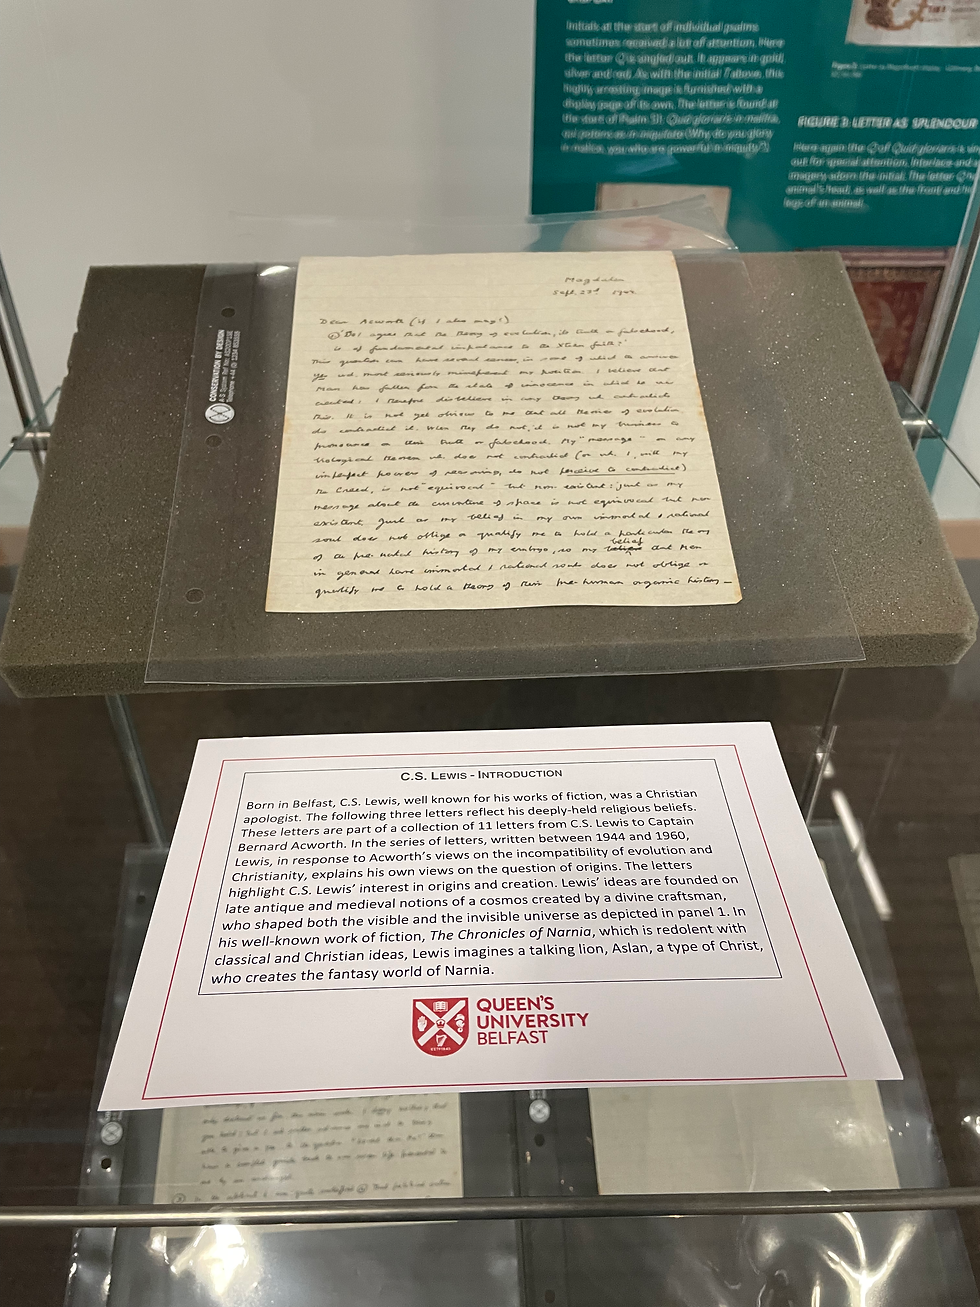 Initials at the start of individual psalms
sometimes received a lot of attention. Here
the letter Q is singled out. It appears in gold,
silver and red. As with the initial T above, this
highly arresting image is furnished with a
display page of its own. The letter is found at
the start of Psalm 51, Quid gloriaris in malitia,
qui potens es in iniquitate (Why do you glory
in malice, you who are powerful in iniquity?)
FIGURE 3: LETTER AS SPLENDOUR
Here again the Q of Quid gloriaris is
out for special attention. Interlace and
imagery adorn the initial. The letter
animal's head, as well as the front and
legs of an animal.
CONSERVATION BY DESIGN
Magdalen
Sept. 23rd
Dear Acworth (if I also may!)
① 'Do I agree that the theory of evolution, its truth or falsehood,
is of fundamental importance to the Xtian faith?'
This question can have several senses, in some of which to answer
yes wd. most seriously misrepresent my position. I believe that
Man has fallen from the state of innocence in which he was
created: I therefore disbelieve in any theory wh. contradicts
this. It is not yet obvious to me that all theories of evolution
do contradict it. When they do not, it is not my business to
pronounce on their truth or falsehood. My "message" on any
biological theorem wh. does not contradict (or wh. I, with my
imperfect powers of reasoning, do not perceive to contradict)
the Creed, is not "equivocal" but non existent: just as my
message about the curvature of space is not equivocal but non
existent. Just as my belief in my own immortal & rational
soul does not oblige or qualify me to hold a particular theory
of the pre-natal history of my embryo, so my belief that Men
in general have immortal & rational souls does not oblige or
qualify me to hold a theory of their pre-human organic history—
C.S. LEWIS - INTRODUCTION
Born in Belfast, C.S. Lewis, well known for his works of fiction, was a Christian
apologist. The following three letters reflect his deeply-held religious beliefs.
These letters are part of a collection of 11 letters from C.S. Lewis to Captain
Bernard Acworth. In the series of letters, written between 1944 and 1960,
Lewis, in response to Acworth's views on the incompatibility of evolution and
Christianity, explains his own views on the question of origins. The letters
highlight C.S. Lewis' interest in origins and creation. Lewis' ideas are founded on
late antique and medieval notions of a cosmos created by a divine craftsman,
who shaped both the visible and the invisible universe as depicted in panel 1. In
his well-known work of fiction, The Chronicles of Narnia, which is redolent with
classical and Christian ideas, Lewis imagines a talking lion, Aslan, a type of Christ,
who creates the fantasy world of Narnia.
QUEEN'S
UNIVERSITY
BELFAST